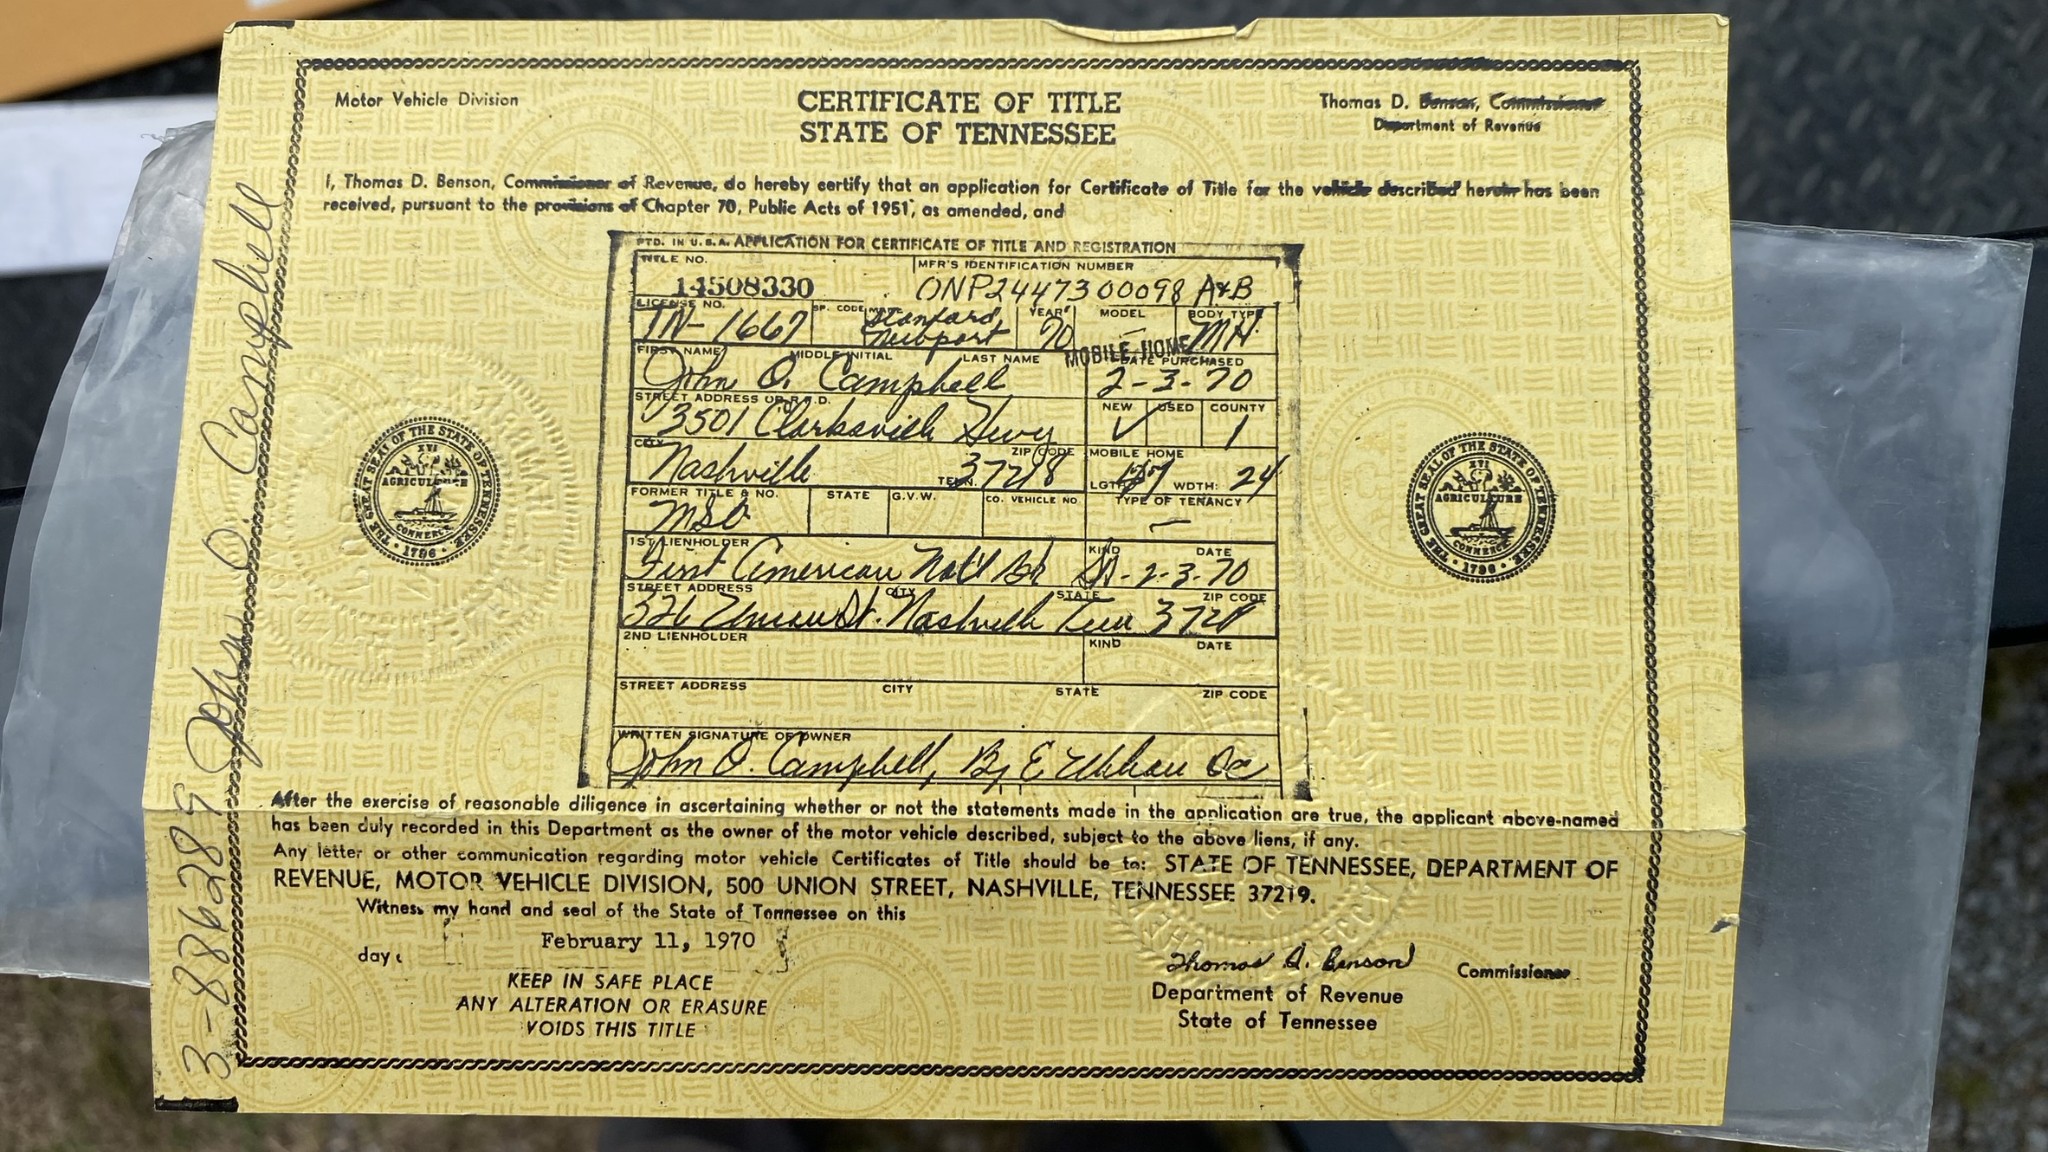 Motor Vehicle Division
CERTIFICATE OF TITLE
STATE OF TENNESSEE
Thomas D. Benson, Commissioner
Department of Revenue
I, Thomas D. Benson, Commissioner of Revenue, do hereby certify that an application for Certificate of Title for the vehicle described herein has been
received, pursuant to the provisions of Chapter 70, Public Acts of 1951, as amended, and
PTD. IN U.S.A. APPLICATION FOR CERTIFICATE OF TITLE AND REGISTRATION
TITLE NO. MFR'S IDENTIFICATION NUMBER
14508330 ONP2447300098 A&B
LICENSE NO. SP. CODE MAKE YEAR MODEL BODY TYPE
TN-1667 Stanford Newport 70 - MH
MOBILE HOME
FIRST NAME MIDDLE INITIAL LAST NAME DATE PURCHASED
John O. Campbell 2-3-70
STREET ADDRESS OR R.F.D. NEW USED COUNTY
3501 Clarksville Hwy ✓ 1
CITY ZIP CODE MOBILE HOME
Nashville TENN. 37218 LGTH: WDTH: 24
FORMER TITLE & NO. STATE G.V.W. CO. VEHICLE NO. TYPE OF TENANCY
MSO -
1ST LIENHOLDER KIND DATE
First American Nat'l Bk 2-3-70
STREET ADDRESS CITY STATE ZIP CODE
326 Union St. Nashville Tenn
2ND LIENHOLDER KIND DATE
STREET ADDRESS CITY STATE ZIP CODE
WRITTEN SIGNATURE OF OWNER
John O. Campbell, By E
After the exercise of reasonable diligence in ascertaining whether or not the statements made in the application are true, the applicant above-named
has been duly recorded in this Department as the owner of the motor vehicle described, subject to the above liens, if any.
Any letter or other communication regarding motor vehicle Certificates of Title should be to: STATE OF TENNESSEE, DEPARTMENT OF
REVENUE, MOTOR VEHICLE DIVISION, 500 UNION STREET, NASHVILLE, TENNESSEE 37219.
Witness my hand and seal of the State of Tennessee on this
day February 11, 1970
KEEP IN SAFE PLACE
ANY ALTERATION OR ERASURE
VOIDS THIS TITLE
Thomas D. Benson Commissioner
Department of Revenue
State of Tennessee
3-886289 John O. Campbell
THE GREAT SEAL OF THE STATE OF TENNESSEE
XVI
AGRICULTURE
COMMERCE
1796
THE GREAT SEAL OF THE STATE OF TENNESSEE
XVI
AGRICULTURE
COMMERCE
1796